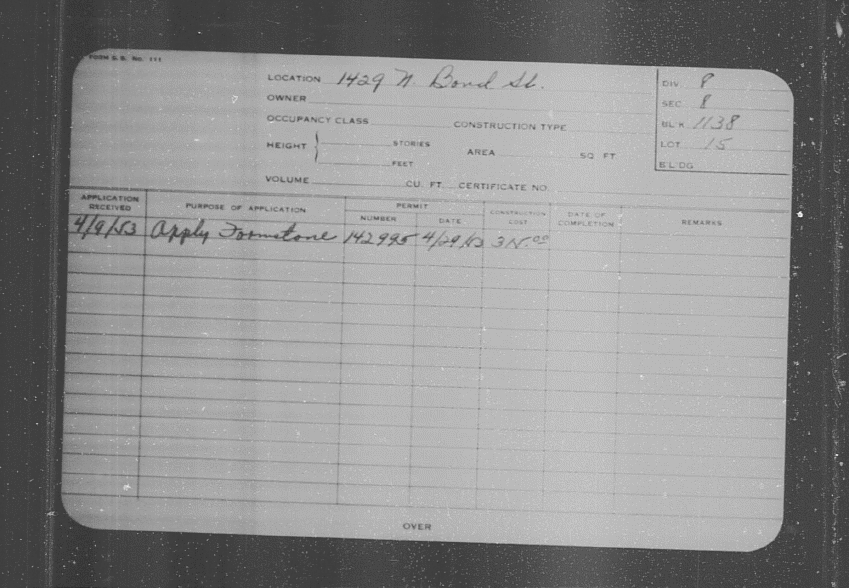 FORM S. B. No. 111
LOCATION 1429 N. Bond St.
OWNER
OCCUPANCY CLASS CONSTRUCTION TYPE
HEIGHT STORIES
FEET
AREA SQ. FT.
VOLUME CU. FT. CERTIFICATE NO.
DIV. 8
SEC. 8
BL'K 1138
LOT 15
BLDG
APPLICATION RECEIVED PURPOSE OF APPLICATION PERMIT NUMBER DATE CONSTRUCTION COST DATE OF COMPLETION REMARKS
4/9/53 Apply Formstone 142995 4/29/53
OVER